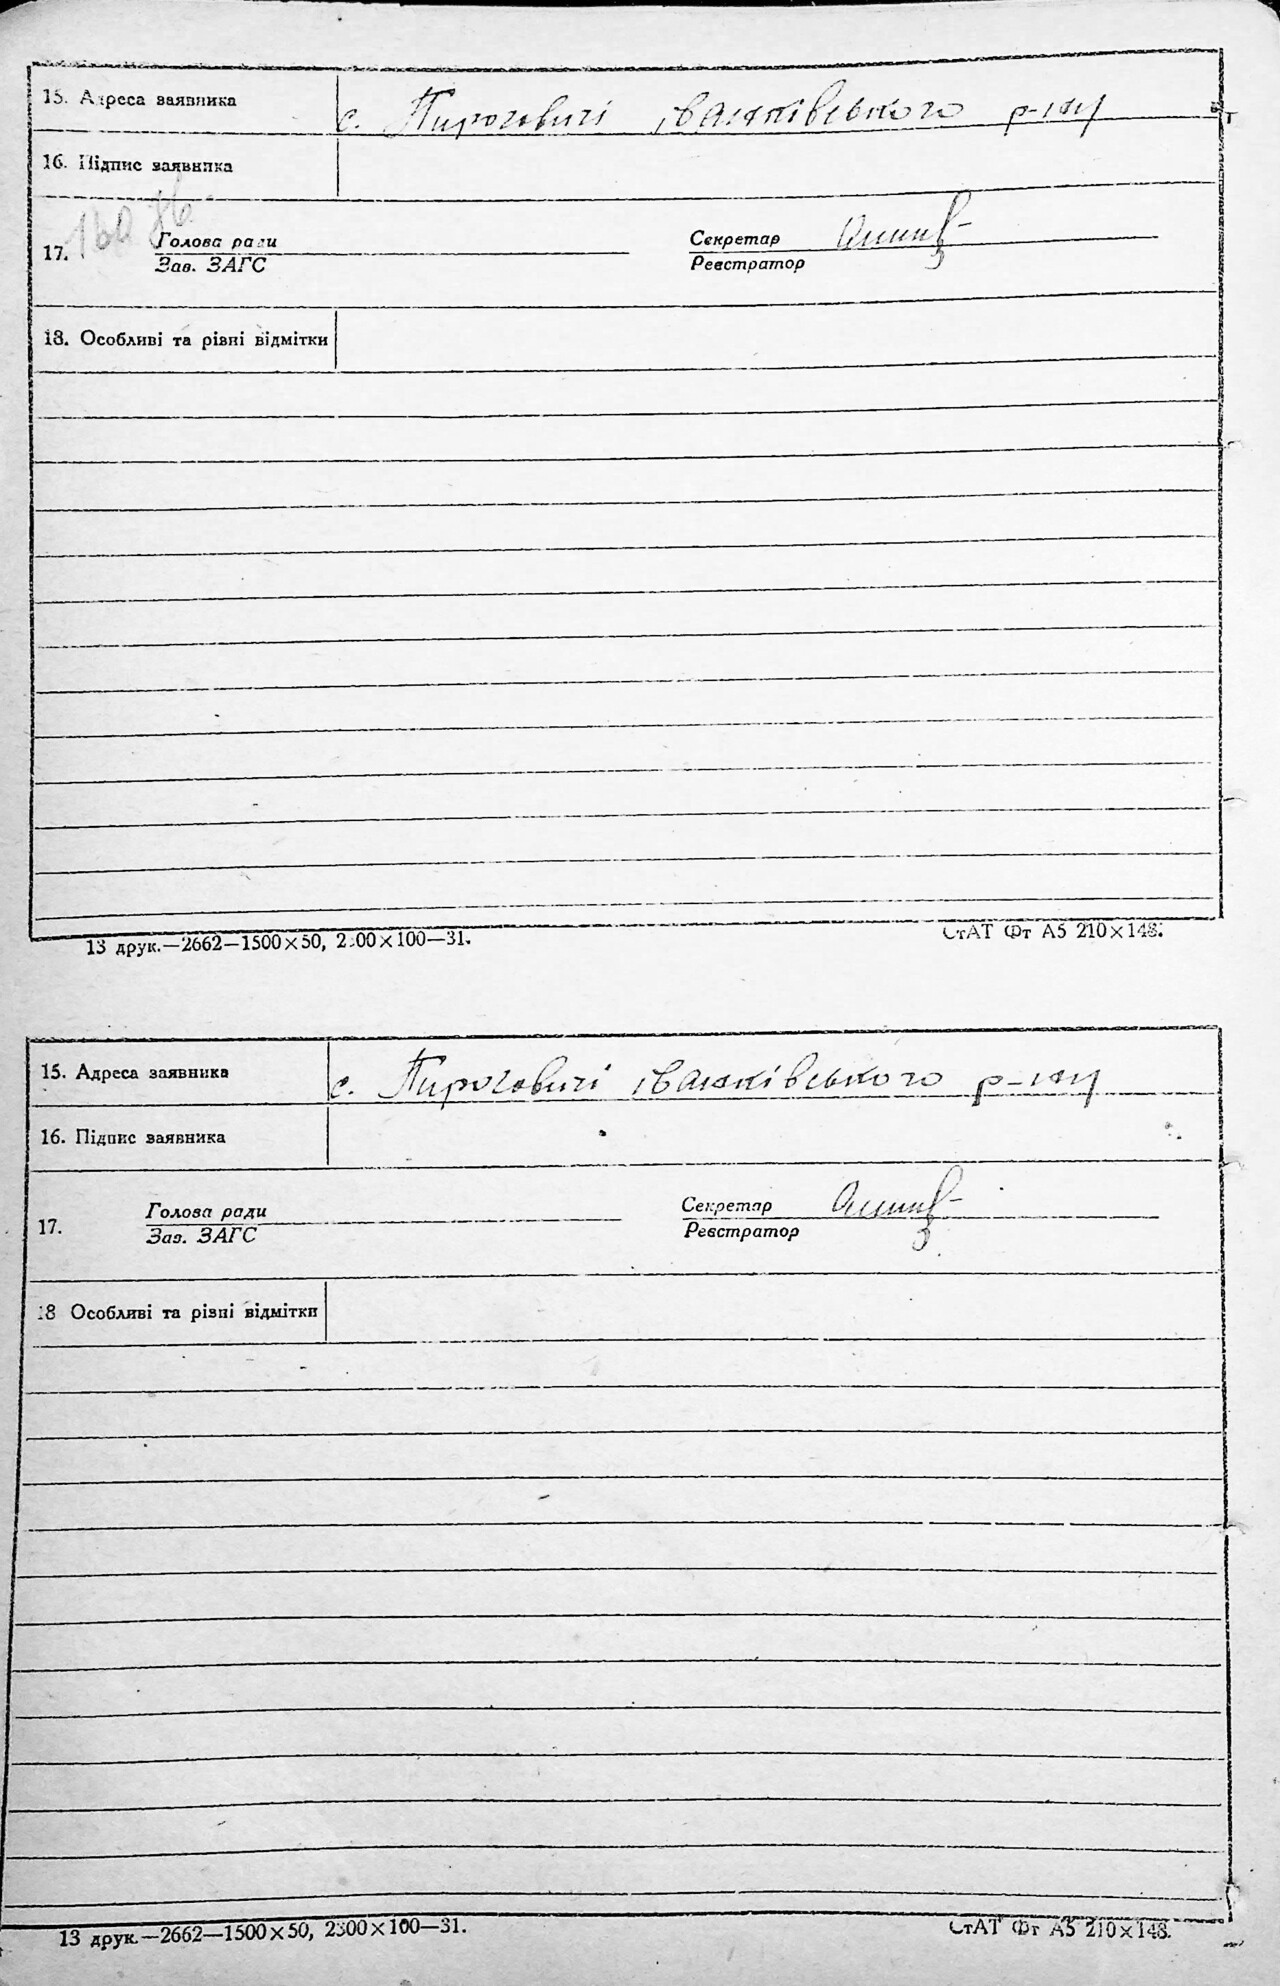 15. Адреса заявника
с. Пироговичі іванківського р-ну
16. Підпис заявника
17.
Голова ради
Зав. ЗАГС
Секретар
Реєстратор
18. Особливі та різні відмітки
13 друк.—2662—1500×50, 2300×100—31.
СтАТ Фт А5 210×148.
15. Адреса заявника
с. Пироговичі іванківського р-ну
16. Підпис заявника
17.
Голова ради
Зав. ЗАГС
Секретар
Реєстратор
18 Особливі та різні відмітки
13 друк.—2662—1500×50, 2300×100—31.
СтАТ Фт А5 210×148.